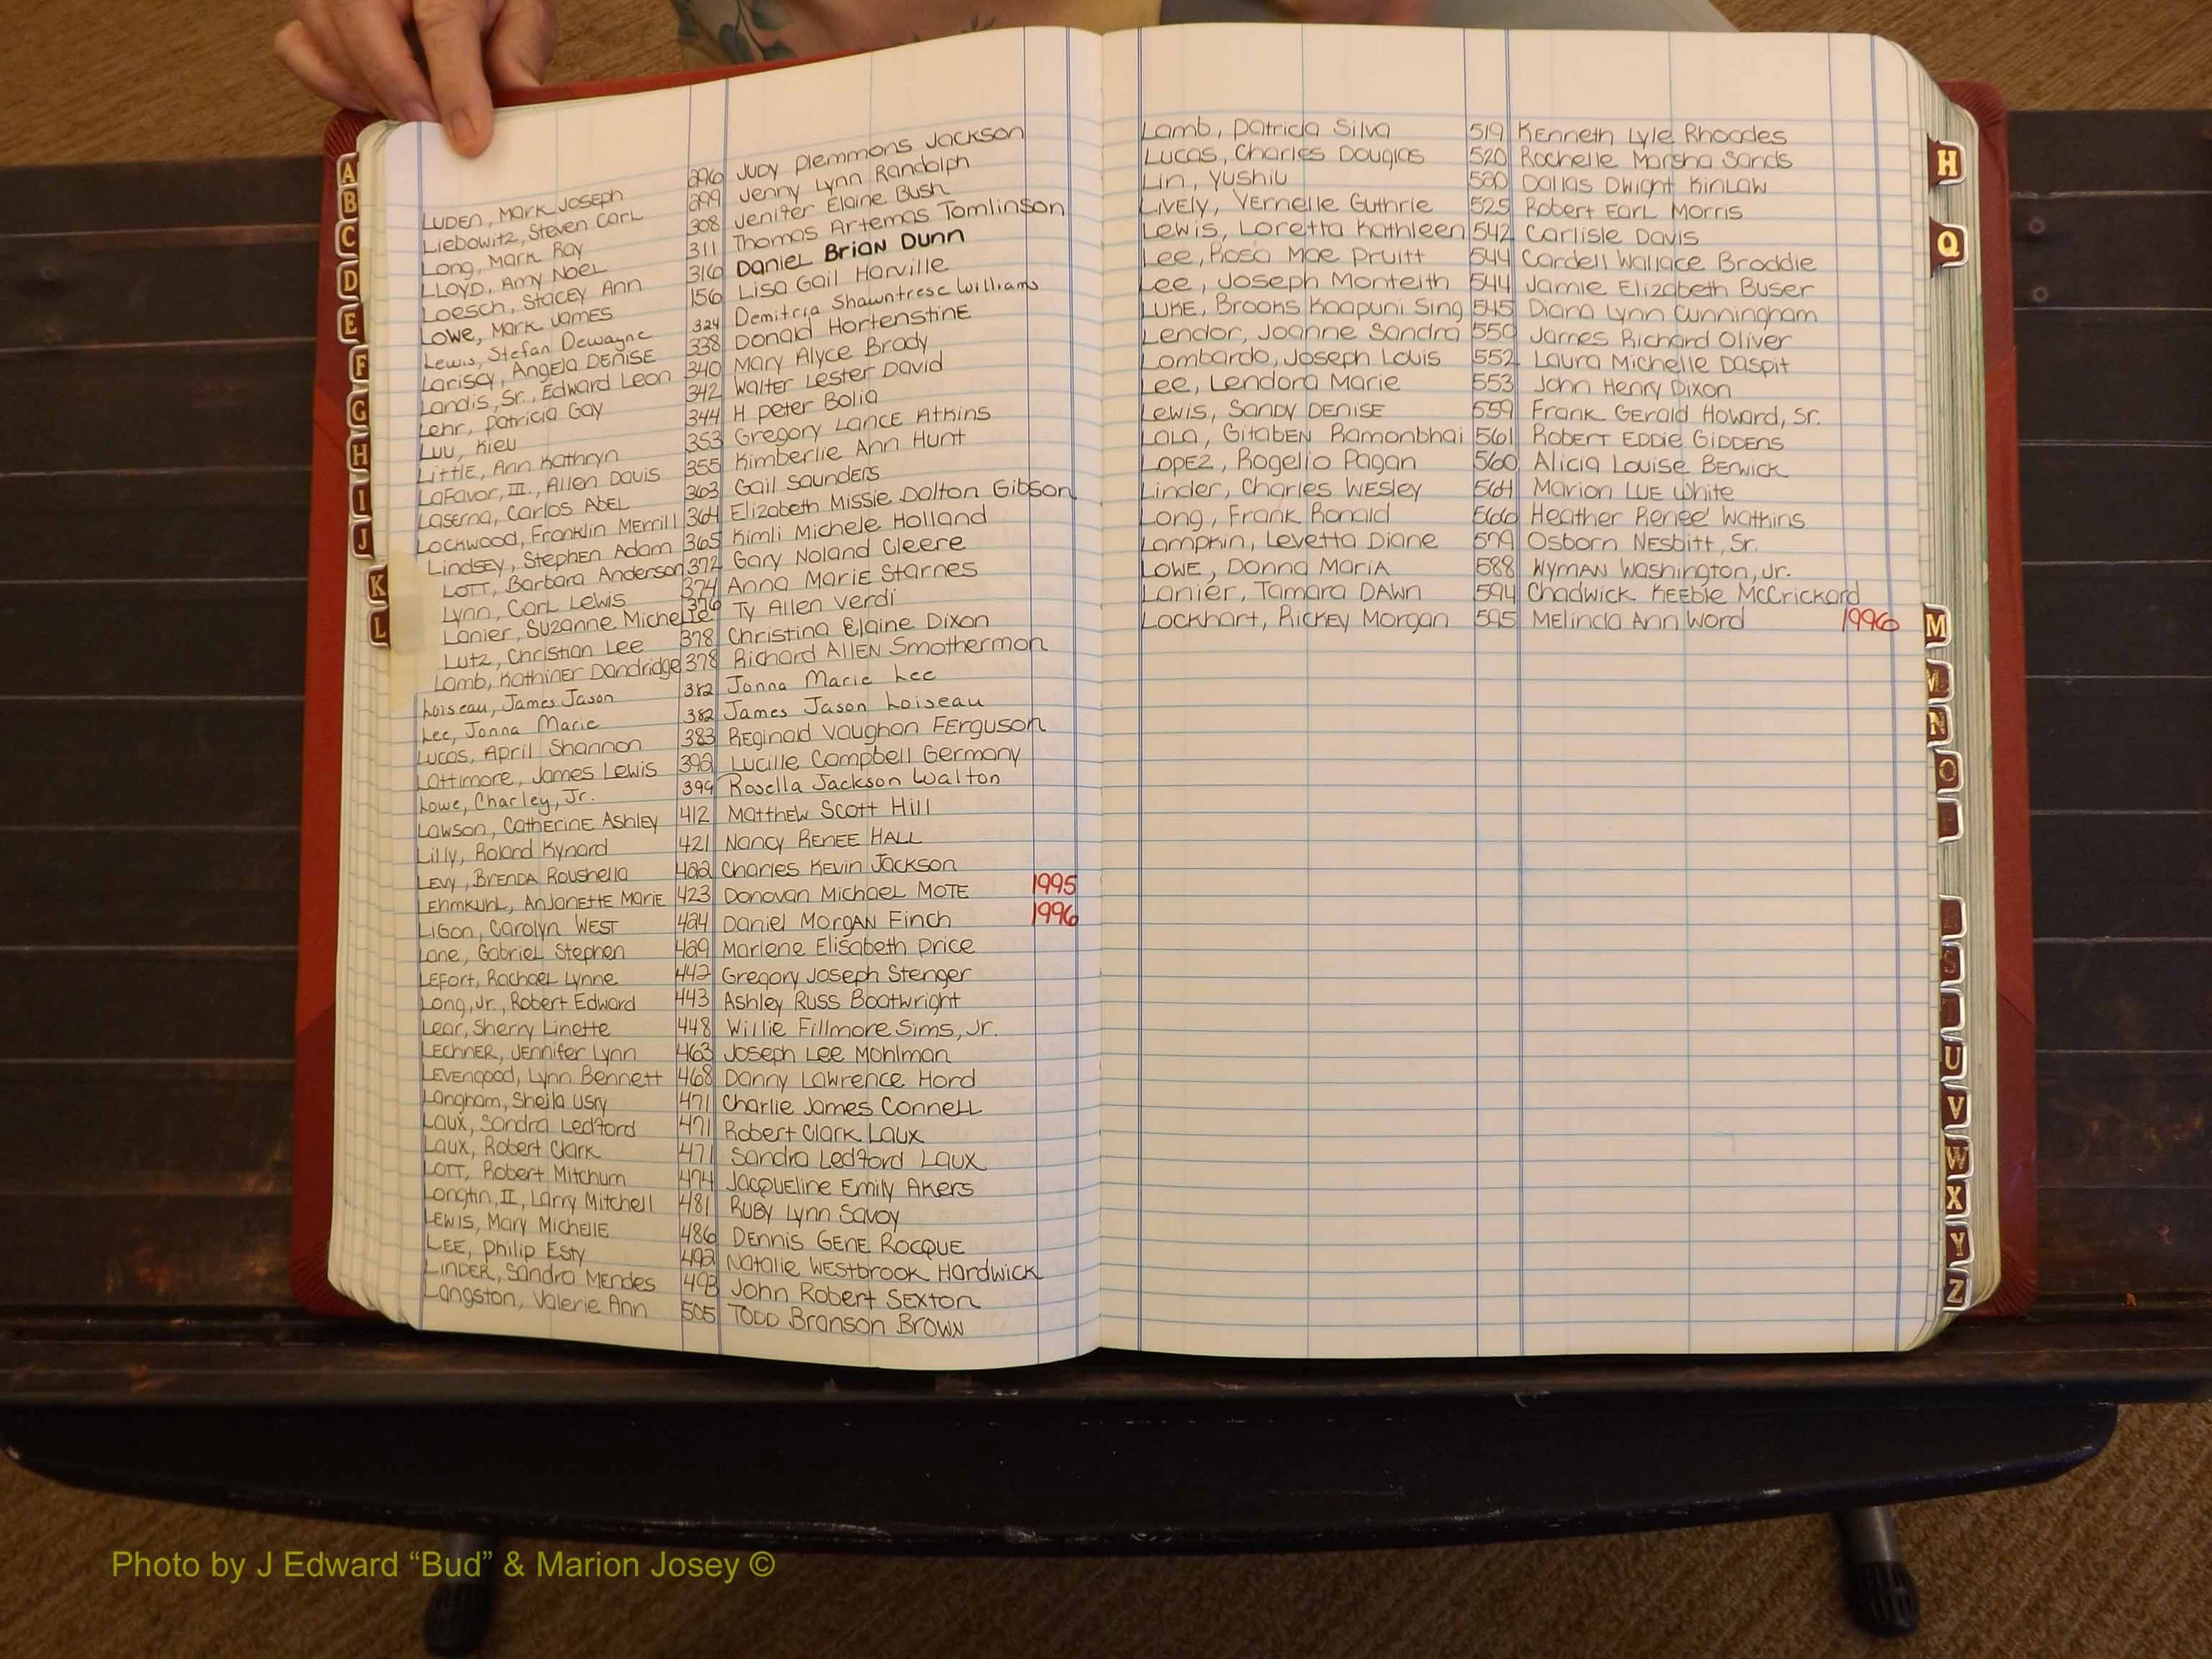 Luden, Mark Joseph 296 Judy Plemmons Jackson
Liebowitz, Steven Carl 299 Jenny Lynn Randolph
Long, Mark Ray 308 Jenifer Elaine Bush
Lloyd, Amy Noel 311 Thomas Artemas Tomlinson
Loesch, Stacey Ann 316 Daniel Brian Dunn
Lowe, Mark James 156 Lisa Gail Harville
Lewis, Stefan Dewayne 324 Demitria Shawntrese Williams
Lariscy, Angela Denise 338 Donald Hortenstine
Landis, Sr., Edward Leon 340 Mary Alyce Brady
Lehr, Patricia Gay 342 Walter Lester David
Luu, Kieu 344 H Peter Bolia
Little, Ann Kathryn 353 Gregory Lance Atkins
LaFavor, III., Allen Davis 355 Kimberlie Ann Hunt
Laserna, Carlos Abel 363 Gail Saunders
Lockwood, Franklin Merrill 364 Elizabeth Missie Dalton Gibson
Lindsey, Stephen Adam 365 Kimli Michele Holland
Lott, Barbara Anderson 372 Gary Noland Cleere
Lynn, Carl Lewis 374 Anna Marie Starnes
Lanier, Suzanne Michelle 376 Ty Allen Verdi
Lutz, Christian Lee 378 Christina Elaine Dixon
Lamb, Kathiner Dandridge 378 Richard Allen Smotherman
Loiseau, James Jason 382 Jonna Marie Lee
Lee, Jonna Marie 382 James Jason Loiseau
Lucas, April Shannon 383 Reginald Vaughan Ferguson
Lattimore, James Lewis 392 Lucille Campbell Germany
Lowe, Charley, Jr. 399 Rosella Jackson Walton
Lawson, Catherine Ashley 412 Matthew Scott Hill
Lilly, Roland Kynard 421 Nancy Renee Hall
Levy, Brenda Roushella 422 Charles Kevin Jackson
Lehmkuhl, Anjanette Marie 423 Donovan Michael Mote 1995
Ligon, Carolyn West 424 Daniel Morgan Finch 1996
Lane, Gabriel Stephen 429 Marlene Elisabeth Price
Lefort, Rachael Lynne 442 Gregory Joseph Stenger
Long, Jr., Robert Edward 443 Ashley Russ Boatwright
Lear, Sherry Linette 448 Willie Fillmore Sims, Jr.
Lechner, Jennifer Lynn 463 Joseph Lee Mohlman
Levengood, Lynn Bennett 468 Danny Lawrence Hord
Langham, Sheila Usry 471 Charlie James Connell
Laux, Sandra Ledford 471 Robert Clark Laux
Laux, Robert Clark 471 Sandra Ledford Laux
Lott, Robert Mitchum 474 Jacqueline Emily Akers
Longtin, II, Larry Mitchell 481 Ruby Lynn Savoy
Lewis, Mary Michelle 486 Dennis Gene Rocque
Lee, Philip Esty 492 Natalie Westbrook Hardwick
Linder, Sandra Mendes 493 John Robert Sexton
Langston, Valerie Ann 505 Todd Branson Brown
Lamb, Patricia Silva 519 Kenneth Lyle Rhoades
Lucas, Charles Douglas 520 Rochelle Marsha Sands
Lin, Yushiu 520 Dallas Dwight Kinlaw
Lively, Vernelle Guthrie 525 Robert Earl Morris
Lewis, Loretta Kathleen 542 Carlisle Davis
Lee, Rosa Mae Pruitt 544 Cardell Wallace Broddie
Lee, Joseph Monteith 544 Jamie Elizabeth Buser
Luke, Brooks Kaapuni Sing 545 Diana Lynn Cunningham
Lendor, Joanne Sandra 550 James Richard Oliver
Lombardo, Joseph Louis 552 Laura Michelle Daspit
Lee, Lendora Marie 553 John Henry Dixon
Lewis, Sandy Denise 559 Frank Gerald Howard, Sr.
Lala, Gitaben Ramonbhai 561 Robert Eddie Giddens
Lopez, Rogelio Pagan 560 Alicia Louise Berwick
Linder, Charles Wesley 564 Marion Lue White
Long, Frank Ronald 566 Heather Renee' Watkins
Lampkin, Levetta Diane 579 Osborn Nesbitt, Sr.
Lowe, Donna Maria 588 Wyman Washington, Jr.
Lanier, Tamara Dawn 594 Chadwick Keeble McCrickard
Lockhart, Rickey Morgan 595 Melinda Ann Word 1996
A
B
C
D
E
F
G
H
I
J
K
L
H
Q
M
N
O
S
U
V
W
X
Y
Z
Photo by J Edward “Bud” & Marion Josey ©